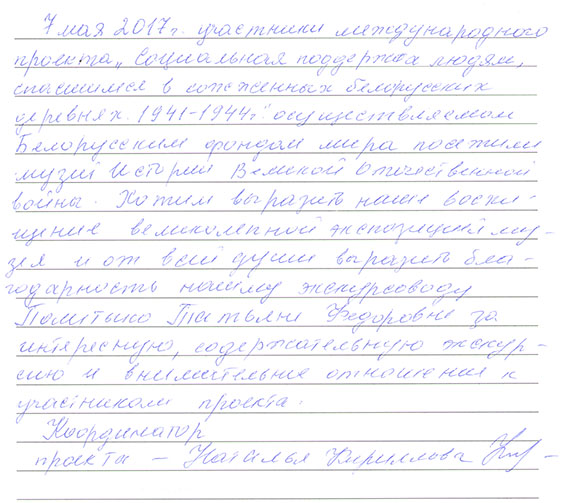 7 мая 2017 г. участники международного
проекта „Социальная поддержка людям,
спасшимся в сожженных белорусских
деревнях. 1941-1944г." осуществляемом
Белорусским фондом мира посетили
музей Истории Великой Отечественной
войны. Хотим выразить наше восхи-
щение великолепной экспозицией му-
зея и от всей души выразить бла-
годарность нашему экскурсоводу
Татьяне Федоровне за
интересную, содержательную экскур-
сию и внимательное отношение к
участникам проекта.
Координатор
проекта – Наталья Кириллова